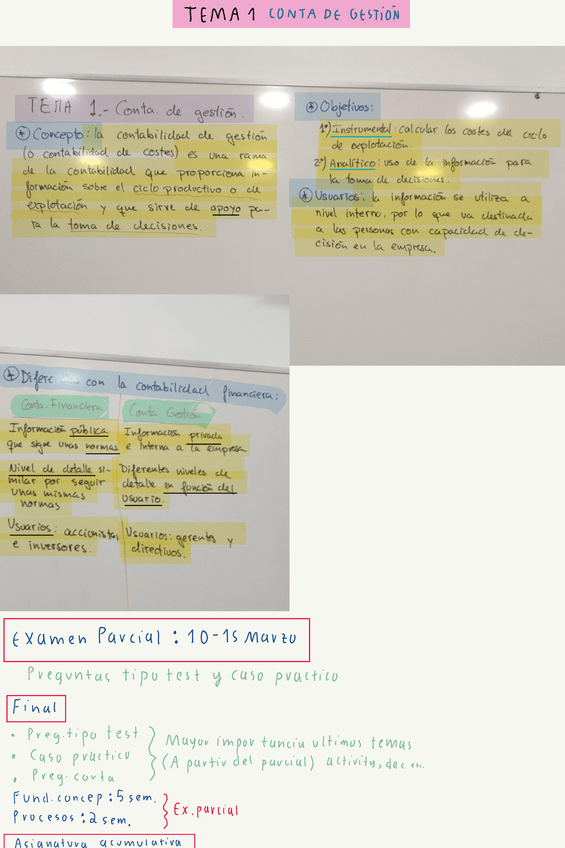 TEMA 1 CONTA DE GESTIÓN
TEMA 1.- Conta. de gestión.
* Concepto: la contabilidad de gestión
(o contabilidad de costes) es una rama
de la contabilidad que proporciona in-
formación sobre el ciclo productivo o de
explotación y que sirve de apoyo pa-
ra la toma de decisiones.
* Objetivos:
1º) Instrumental: calcular los costes del ciclo
de explotación.
2º) Analítico: uso de la información para
la toma de decisiones.
* Usuarios: la información se utiliza a
nivel interno, por lo que va destinada
a las personas con capacidad de de-
cisión en la empresa.
* con la contabilidad financiera:
Conta. Financiera
Conta Gestión
Información pública
que sigue unas normas
Información privada
e interna a la empresa
Nivel de detalle si-
milar por seguir
unas mismas
normas
Diferentes niveles de
detalle en función del
usuario.
Usuarios: accionistas
e inversores.
Usuarios: gerentes y
directivos.
Examen Parcial: 10-15 Marzo
Preguntas tipo test y caso practico
Final
• Preg. tipo test
• Caso practico
• Preg. corta
Mayor importancia ultimos temas
(A partir del parcial)
Fund. concep: 5 sem.
Procesos: 2 sem.
Ex. parcial
Asignatura acumulativa